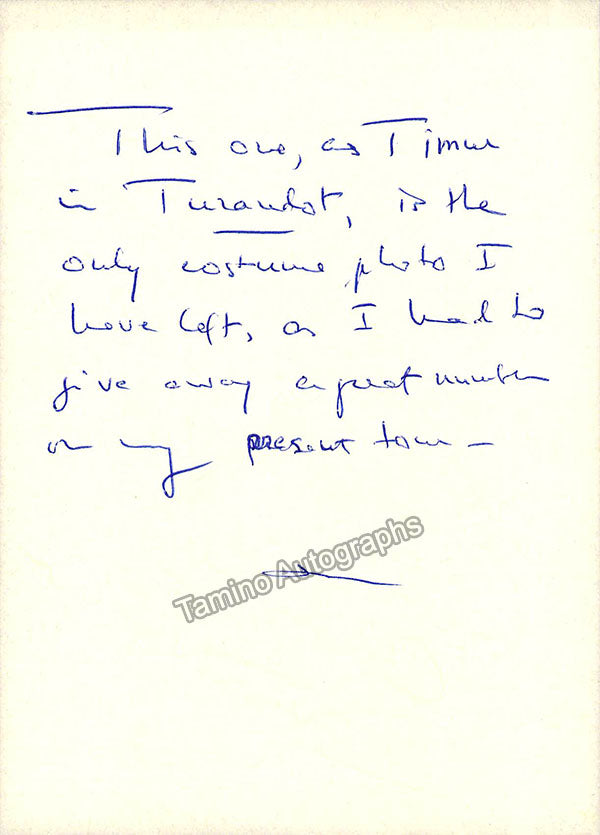 This one, as Timur
in Turandot, is the
only costume photo I
have left, as I had to
give away a great number
on my present tour —
Tamino Autographs